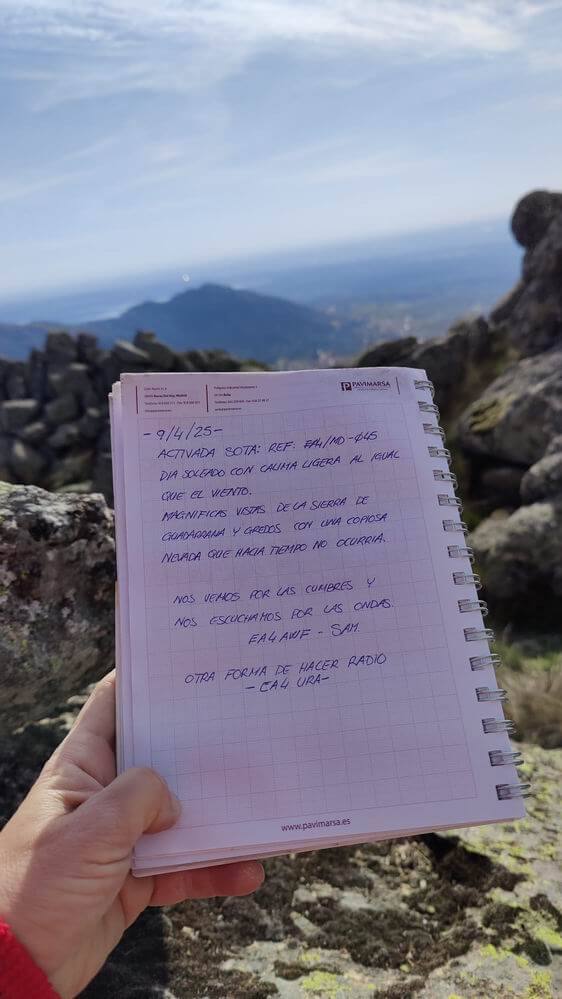 PAVIMARSA
-9/4/25-
ACTIVADA SOTA: REF: EA4/MD-Ø45
DIA SOLEADO CON CALIMA LIGERA AL IGUAL
QUE EL VIENTO.
MAGNIFICAS VISTAS DE LA SIERRA DE
GUADARRAMA Y GREDOS CON UNA COPIOSA
NEVADA QUE HACIA TIEMPO NO OCURRIA.
NOS VEMOS POR LAS CUMBRES Y
NOS ESCUCHAMOS POR LAS ONDAS.
EA4AWF - SAM.
OTRA FORMA DE HACER RADIO
-EA4URA-
www.pavimarsa.es